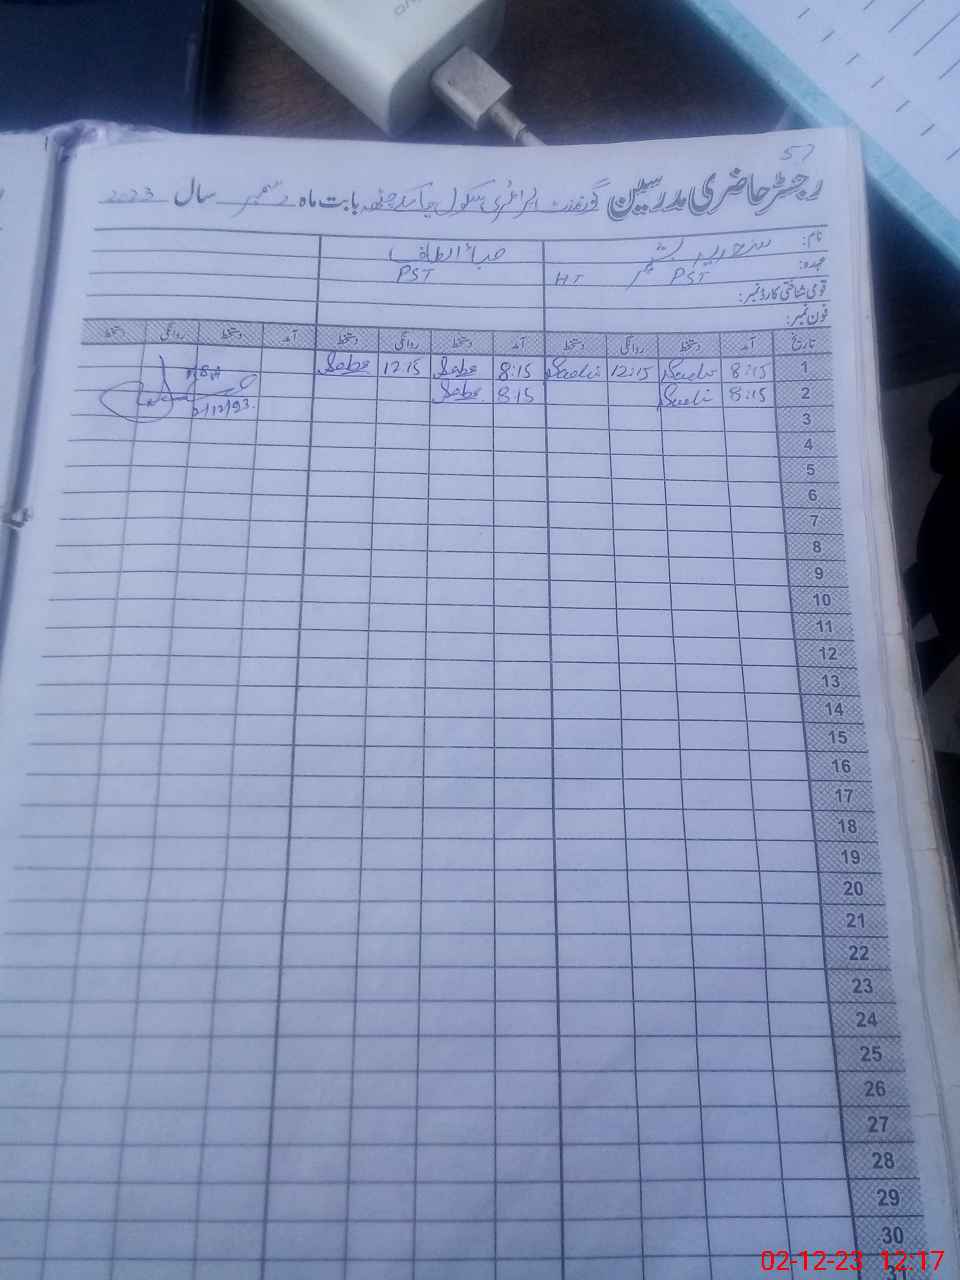 57
رجسٹر حاضری مدرسین گورنمنٹ پرائمری سکول بابت ماہ دسمبر سال 2023
نام: صبا الطاف
عہدہ: PST HT PST
قومی شناختی کارڈ نمبر:
فون نمبر:
تاریخ آمد دستخط روانگی دستخط آمد دستخط روانگی دستخط آمد دستخط روانگی دستخط
1 8:15 12:15 8:15 Saba 12:15 Saba
2 8:15 8:15 Saba
3
4
5
6
7
8
9
10
11
12
13
14
15
16
17
18
19
20
21
22
23
24
25
26
27
28
29
30
31
02-12-23 12:17